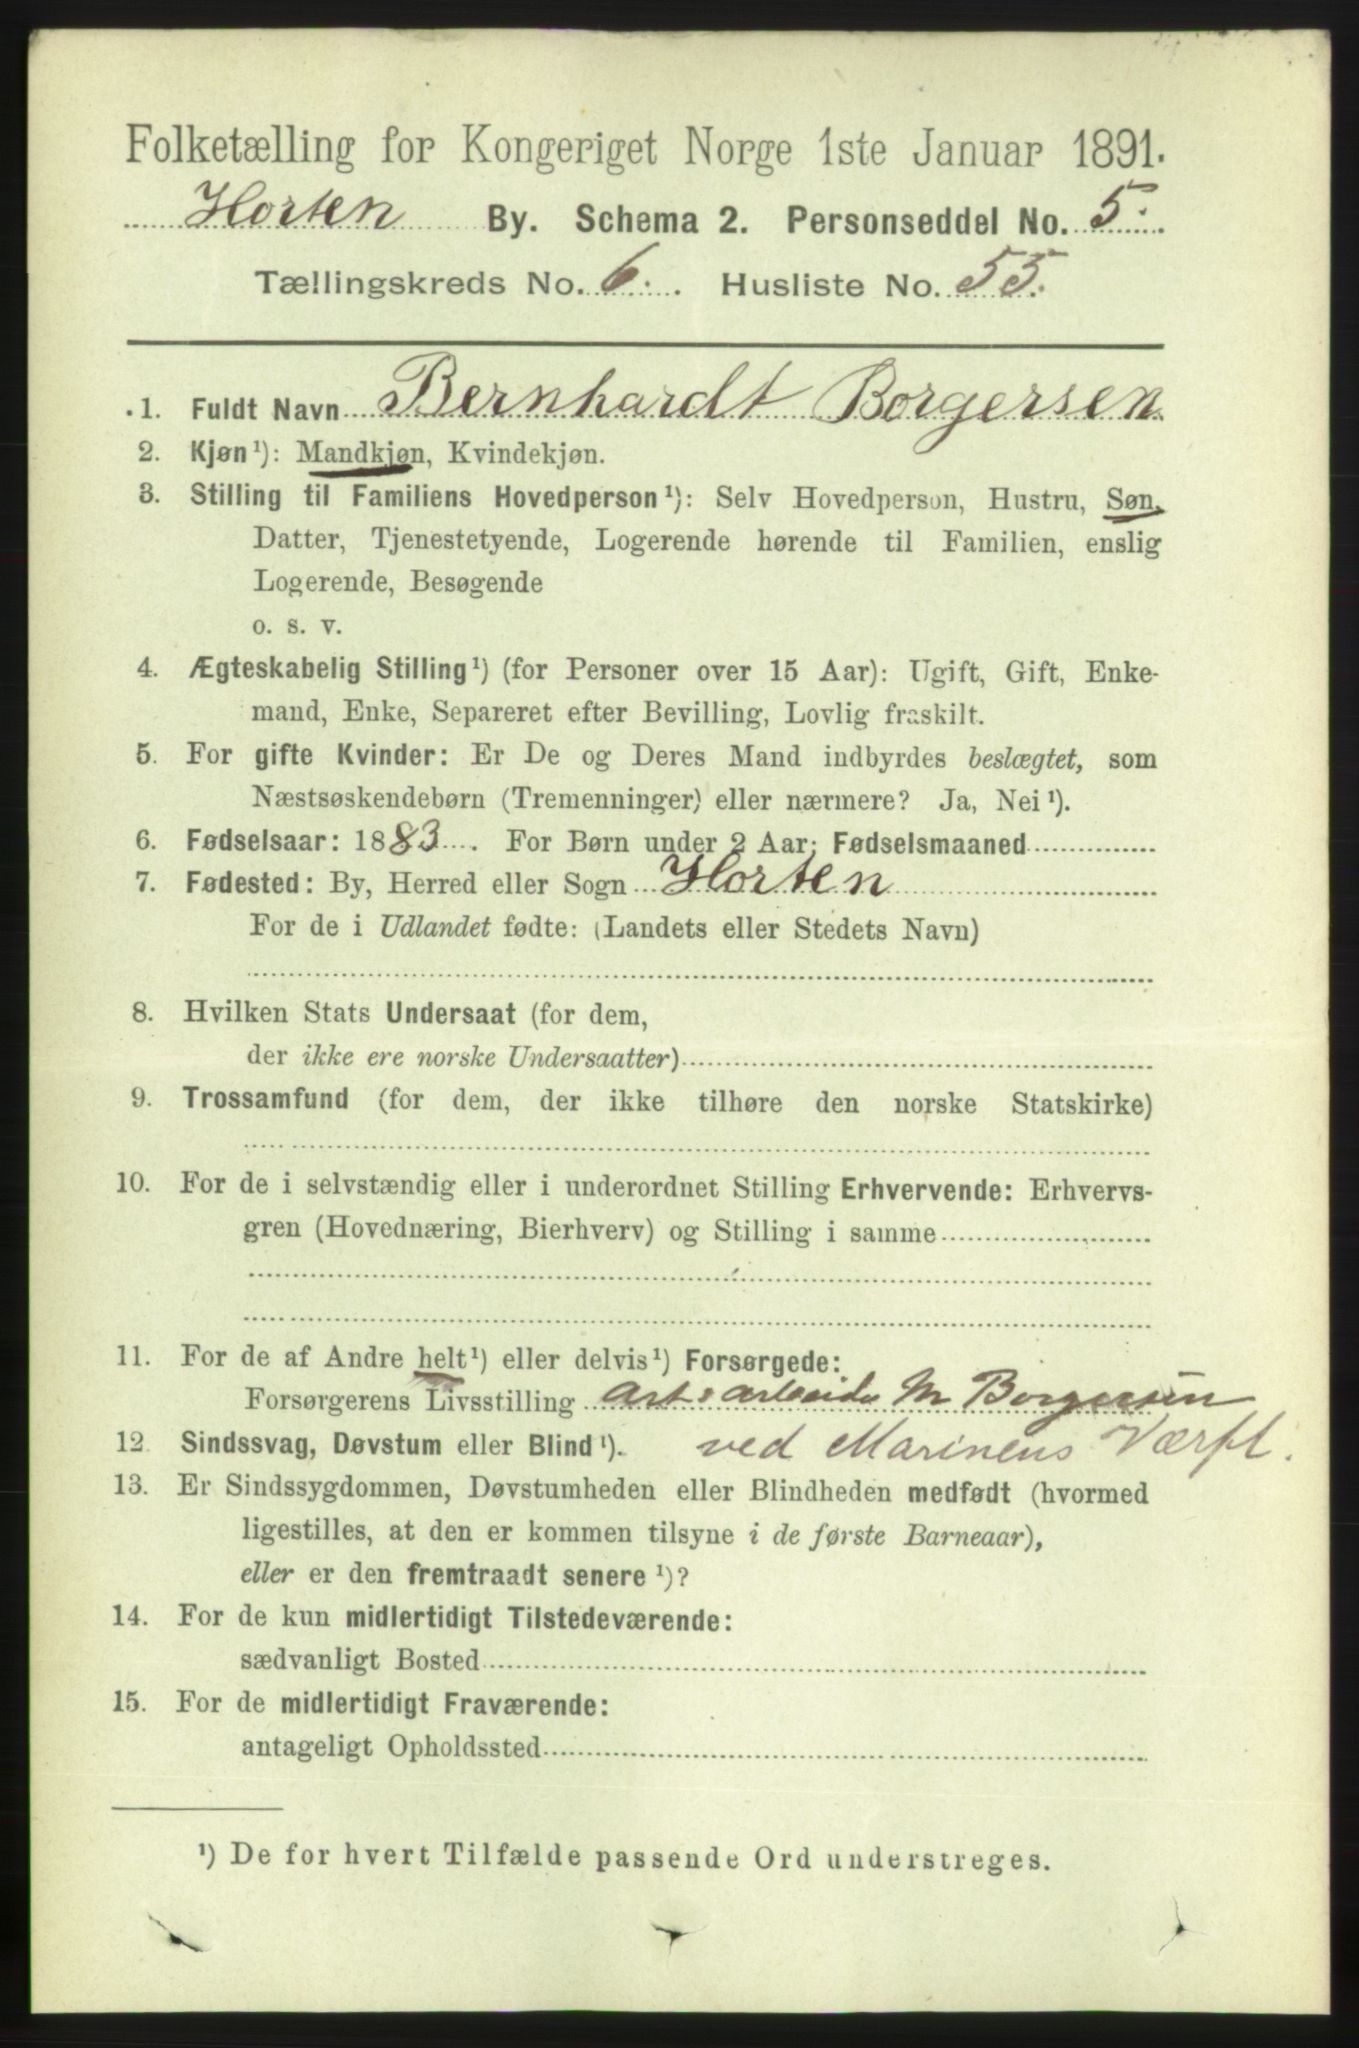 Folketælling for Kongeriget Norge 1ste Januar 1891.
Horten By. Schema 2. Personseddel No. 5.
Tællingskreds No. 6. Husliste No. 55.
1. Fuldt Navn Bernhardt Borgersen
2. Kjøn¹): Mandkjøn, Kvindekjøn.
3. Stilling til Familiens Hovedperson¹): Selv Hovedperson, Hustru, Søn,
Datter, Tjenestetyende, Logerende hørende til Familien, enslig
Logerende, Besøgende
o. s. v.
4. Ægteskabelig Stilling¹) (for Personer over 15 Aar): Ugift, Gift, Enke-
mand, Enke, Separeret efter Bevilling, Lovlig fraskilt.
5. For gifte Kvinder: Er De og Deres Mand indbyrdes beslægtet, som
Næstsøskendebørn (Tremenninger) eller nærmere? Ja, Nei¹).
6. Fødselsaar: 1883. For Børn under 2 Aar: Fødselsmaaned
7. Fødested: By, Herred eller Sogn Horten
For de i Udlandet fødte: (Landets eller Stedets Navn)
8. Hvilken Stats Undersaat (for dem,
der ikke ere norske Undersaatter)
9. Trossamfund (for dem, der ikke tilhøre den norske Statskirke)
10. For de i selvstændig eller i underordnet Stilling Erhvervende: Erhvervs-
gren (Hovednæring, Bierhverv) og Stilling i samme
11. For de af Andre helt¹) eller delvis¹) Forsørgede:
Forsørgerens Livsstilling M Borgersen
12. Sindssvag, Døvstum eller Blind¹). ved Marinens Værft.
13. Er Sindssygdommen, Døvstumheden eller Blindheden medfødt (hvormed
ligestilles, at den er kommen tilsyne i de første Barneaar),
eller er den fremtraadt senere¹)?
14. For de kun midlertidigt Tilstedeværende:
sædvanligt Bosted
15. For de midlertidigt Fraværende:
antageligt Opholdssted
¹) De for hvert Tilfælde passende Ord understreges.